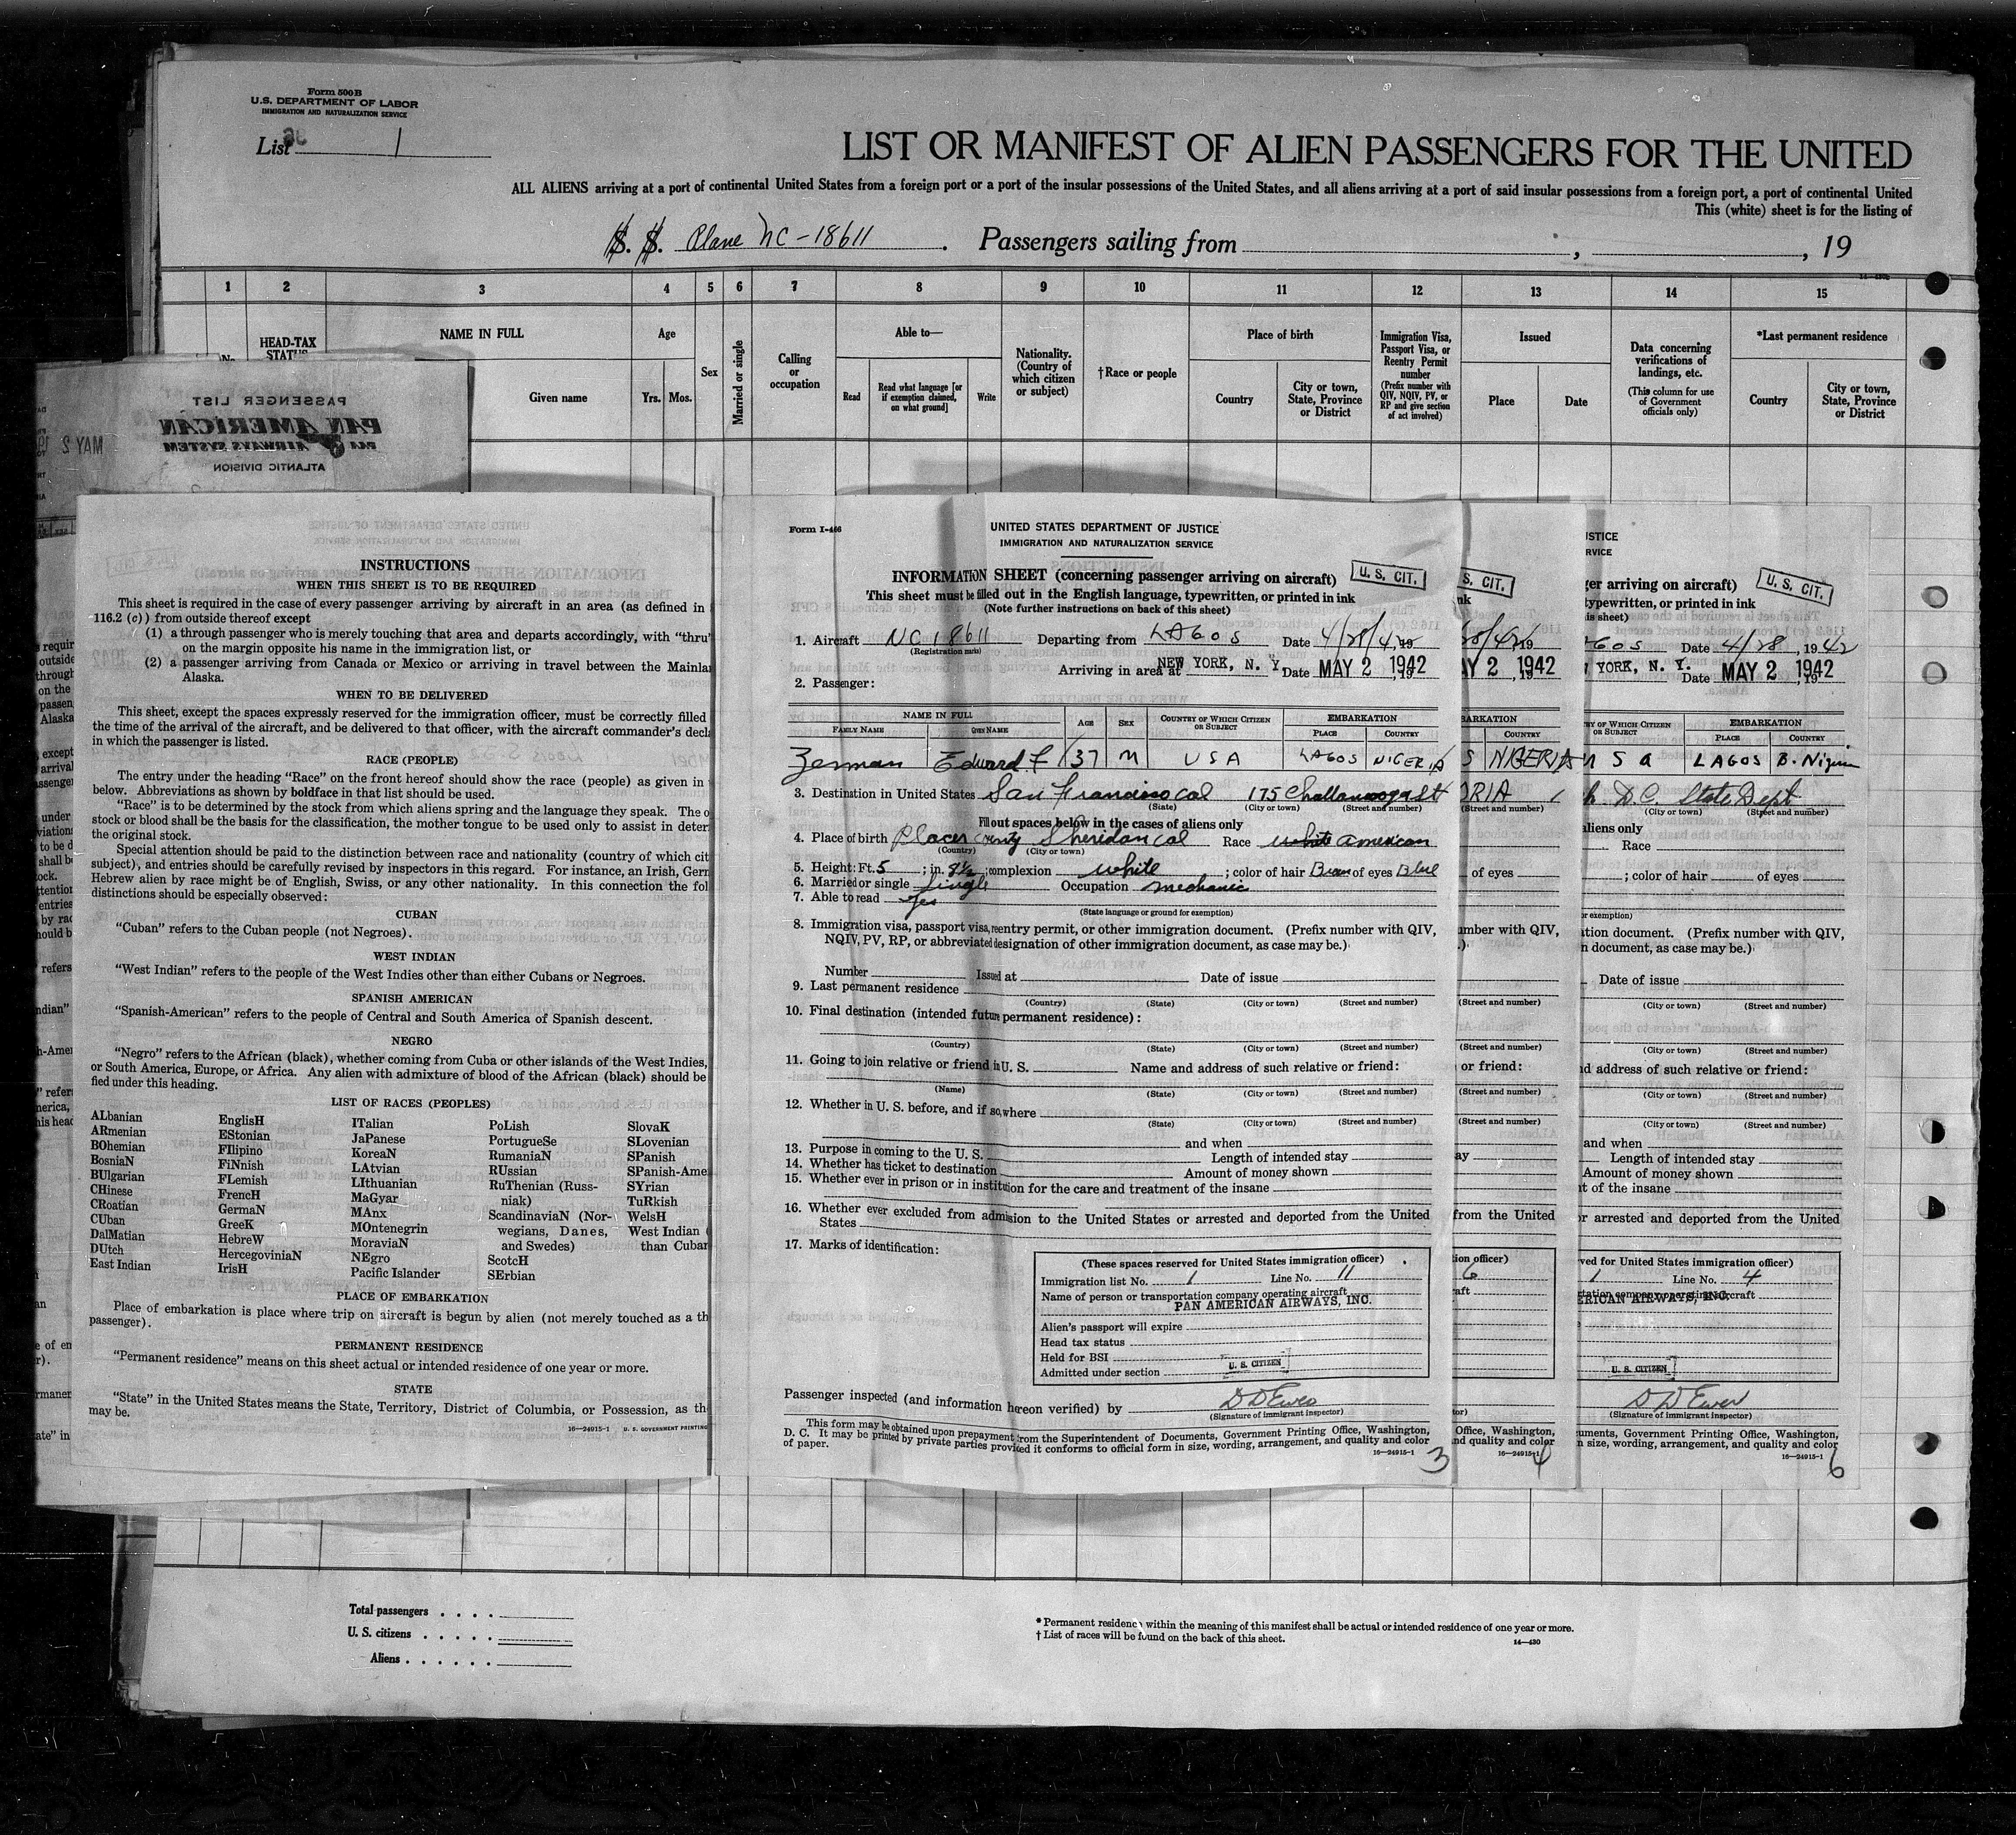 Form 500 B
U.S. DEPARTMENT OF LABOR
IMMIGRATION AND NATURALIZATION SERVICE
List 1
LIST OR MANIFEST OF ALIEN PASSENGERS FOR THE UNITED
ALL ALIENS arriving at a port of continental United States from a foreign port or a port of the insular possessions of the United States, and all aliens arriving at a port of said insular possessions from a foreign port, a port of continental United
This (white) sheet is for the listing of
S. S. Plane NC-18611. Passengers sailing from , , 19
1 2 3 4 5 6 7 8 9 10 11 12 13 14 15
HEAD-TAX STATUS
NAME IN FULL
Given name
Age
Yrs. Mos.
Sex
Married or single
Calling or occupation
Able to—
Read
Read what language [or if exemption claimed, on what ground]
Write
Nationality. (Country of which citizen or subject)
†Race or people
Place of birth
Country
City or town, State, Province or District
Immigration Visa, Passport Visa, or Reentry Permit number
(Prefix number with QIV, NQIV, PV, or RP and give section of act involved)
Issued
Place
Date
Data concerning verifications of landings, etc.
(This column for use of Government officials only)
*Last permanent residence
Country
City or town, State, Province or District
PASSENGER LIST
PAN AMERICAN
PAA AIRWAYS SYSTEM
ATLANTIC DIVISION
MAY 2
INSTRUCTIONS
WHEN THIS SHEET IS TO BE REQUIRED
This sheet is required in the case of every passenger arriving by aircraft in an area (as defined in
116.2 (c)) from outside thereof except
(1) a through passenger who is merely touching that area and departs accordingly, with "thru"
on the margin opposite his name in the immigration list, or
(2) a passenger arriving from Canada or Mexico or arriving in travel between the Mainla
Alaska.
WHEN TO BE DELIVERED
This sheet, except the spaces expressly reserved for the immigration officer, must be correctly filled
the time of the arrival of the aircraft, and be delivered to that officer, with the aircraft commander's decla
in which the passenger is listed.
RACE (PEOPLE)
The entry under the heading "Race" on the front hereof should show the race (people) as given in
below. Abbreviations as shown by boldface in that list should be used.
"Race" is to be determined by the stock from which aliens spring and the language they speak. The o
stock or blood shall be the basis for the classification, the mother tongue to be used only to assist in deter
the original stock.
Special attention should be paid to the distinction between race and nationality (country of which cit
subject), and entries should be carefully revised by inspectors in this regard. For instance, an Irish, Gern
Hebrew alien by race might be of English, Swiss, or any other nationality. In this connection the fol
distinctions should be especially observed:
CUBAN
"Cuban" refers to the Cuban people (not Negroes).
WEST INDIAN
"West Indian" refers to the people of the West Indies other than either Cubans or Negroes.
SPANISH AMERICAN
"Spanish-American" refers to the people of Central and South America of Spanish descent.
NEGRO
"Negro" refers to the African (black), whether coming from Cuba or other islands of the West Indies,
or South America, Europe, or Africa. Any alien with admixture of blood of the African (black) should be
fied under this heading.
LIST OF RACES (PEOPLES)
ALbanian
ARmenian
BOhemian
BosniaN
BUlgarian
CHinese
CRoatian
CUban
DalMatian
DUtch
East Indian
EnglisH
EStonian
FIlipino
FiNnish
FLemish
FrencH
GermaN
GreeK
HebreW
HercegoviniaN
IrisH
ITalian
JaPanese
KoreaN
LAtvian
LIthuanian
MaGyar
MAnx
MOntenegrin
MoraviaN
NEgro
Pacific Islander
PoLish
PortugueSe
RumaniaN
RUssian
RuThenian (Russ-
niak)
ScandinaviaN (Nor-
wegians, Danes,
and Swedes)
ScotcH
SErbian
SlovaK
SLovenian
SPanish
SPanish-Ame
SYrian
TuRkish
WelsH
West Indian (
than Cuban
PLACE OF EMBARKATION
Place of embarkation is place where trip on aircraft is begun by alien (not merely touched as a th
passenger).
PERMANENT RESIDENCE
"Permanent residence" means on this sheet actual or intended residence of one year or more.
STATE
"State" in the United States means the State, Territory, District of Columbia, or Possession, as th
may be.
16—24915-1 U. S. GOVERNMENT PRINTING
Form I-466
UNITED STATES DEPARTMENT OF JUSTICE
IMMIGRATION AND NATURALIZATION SERVICE
INFORMATION SHEET (concerning passenger arriving on aircraft)
U. S. CIT.
This sheet must be filled out in the English language, typewritten, or printed in ink
(Note further instructions on back of this sheet)
1. Aircraft NC 18611 Departing from LAGOS Date 4/28/42, 19
(Registration mark)
Arriving in area at NEW YORK, N. Y. Date MAY 2 1942, 19
2. Passenger:
NAME IN FULL AGE SEX COUNTRY OF WHICH CITIZEN OR SUBJECT EMBARKATION
FAMILY NAME GIVEN NAME PLACE COUNTRY
Zerman Edward F 37 M USA LAGOS NIGERIA
3. Destination in United States San Francisco Cal 175 Challanooga St
(State) (City or town) (Street and number)
Fill out spaces below in the cases of aliens only
4. Place of birth Placer County Sheridan Cal Race white american
(Country) (City or town)
5. Height: Ft. 5; in. 8½; complexion white; color of hair Brown of eyes Blue
6. Married or single Single Occupation mechanic
7. Able to read Yes
(State language or ground for exemption)
8. Immigration visa, passport visa, reentry permit, or other immigration document. (Prefix number with QIV,
NQIV, PV, RP, or abbreviated designation of other immigration document, as case may be.)
Number Issued at Date of issue
9. Last permanent residence
(Country) (State) (City or town) (Street and number)
10. Final destination (intended future permanent residence):
(Country) (State) (City or town) (Street and number)
11. Going to join relative or friend in U. S. Name and address of such relative or friend:
(Name) (State) (City or town) (Street and number)
12. Whether in U. S. before, and if so, where
(State) (City or town) (Street and number)
and when
13. Purpose in coming to the U. S. Length of intended stay
14. Whether has ticket to destination Amount of money shown
15. Whether ever in prison or in institution for the care and treatment of the insane
16. Whether ever excluded from admission to the United States or arrested and deported from the United
States
17. Marks of identification:
(These spaces reserved for United States immigration officer)
Immigration list No. 1 Line No. 11
Name of person or transportation company operating aircraft
PAN AMERICAN AIRWAYS, INC.
Alien's passport will expire
Head tax status
Held for BSI
Admitted under section U. S. CITIZEN
Passenger inspected (and information hereon verified) by D D Ewes
(Signature of immigrant inspector)
This form may be obtained upon prepayment from the Superintendent of Documents, Government Printing Office, Washington,
D. C. It may be printed by private parties provided it conforms to official form in size, wording, arrangement, and quality and color
of paper.
16—24915-1
3
S. CIT.
28/42, 19
AY 2 1942, 19
BARKATION
COUNTRY
S NIGERIA
RIA
(Street and number)
of eyes
umber with QIV,
(Street and number)
or friend:
from the United
ion officer)
6
Office, Washington,
nd quality and color
16—24915-1
4
STICE
RVICE
ger arriving on aircraft)
U. S. CIT.
typewritten, or printed in ink
is sheet)
GOS Date 4/28, 1942
YORK, N. Y. Date MAY 2 1942, 19
RY OF WHICH CITIZEN OR SUBJECT EMBARKATION
PLACE COUNTRY
U S A LAGOS B. Nigeria
h. D.C. State Dept
(City or town) (Street and number)
aliens only
Race
; color of hair of eyes
or exemption)
tion document. (Prefix number with QIV,
n document, as case may be.)
Date of issue
(City or town) (Street and number)
(City or town) (Street and number)
d address of such relative or friend:
(City or town) (Street and number)
(City or town) (Street and number)
and when
Length of intended stay
Amount of money shown
t of the insane
or arrested and deported from the United
ved for United States immigration officer)
1 Line No. 4
rtation company operating aircraft
ERICAN AIRWAYS, INC.
U. S. CITIZEN
D D Ewes
(Signature of immigrant inspector)
uments, Government Printing Office, Washington,
n size, wording, arrangement, and quality and color
16—24915-1
6
Total passengers
U. S. citizens
Aliens
* Permanent residence within the meaning of this manifest shall be actual or intended residence of one year or more.
† List of races will be found on the back of this sheet.
14—430